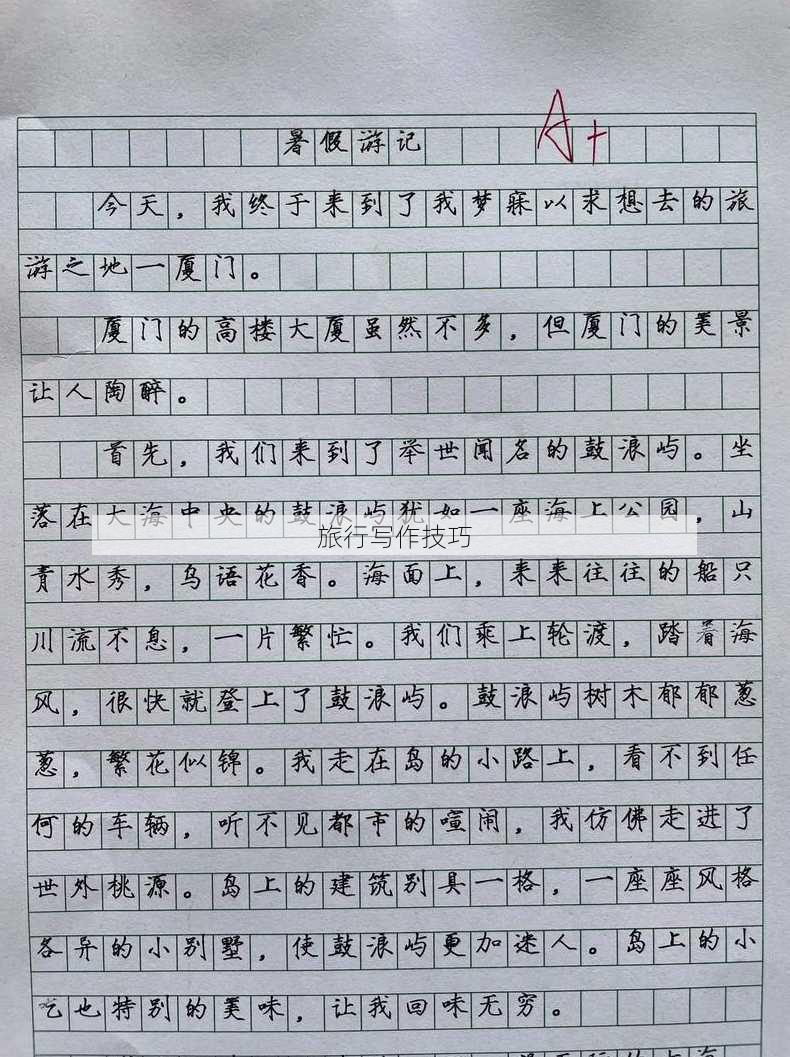 A+
暑假游记
今天，我终于来到了我梦寐以求想去的旅
游之地一厦门。
厦门的高楼大厦虽然不多，但厦门的美景
让人陶醉。
首先，我们来到了举世闻名的鼓浪屿。坐
落在大海中央的鼓浪屿犹如一座海上公园，山
旅行写作技巧
青水秀，鸟语花香。海面上，来来往往的船只
川流不息，一片繁忙。我们乘上轮渡，踏着海
风，很快就登上了鼓浪屿。鼓浪屿树木郁郁葱
葱，繁花似锦。我走在岛的小路上，看不到任
何的车辆，听不见都市的喧闹，我仿佛走进了
世外桃源。岛上的建筑别具一格，一座座风格
各异的小别墅，使鼓浪屿更加迷人。岛上的小
吃也特别的美味，让我回味无穷。